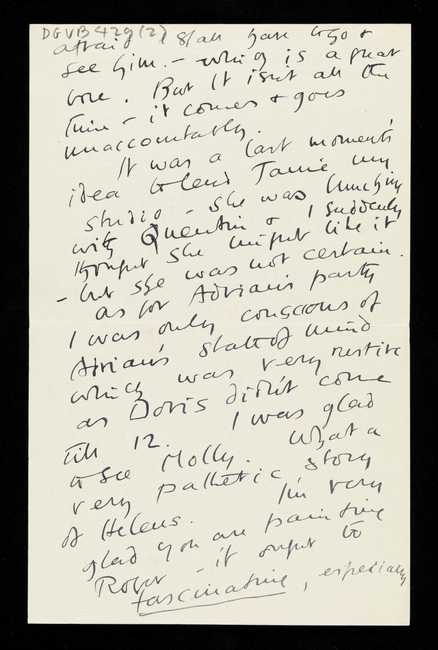 DGVB429(2)
afraid I shall have to go &
see him. – which is a great
bore. But it isn't all the
time – it comes & goes
unaccountably.
It was a last moment's
idea to lend Janie my
studio – she was lunching
with Quentin & I suddenly
thought she might like it
– but she was not certain.
As for Adrian's party
I was only conscious of
Adrian's state of mind
which was very restive
as Doris didn't come
till 12. I was glad
to see Molly. What a
very pathetic story
of Helens. I'm very
glad you are painting
Roger – it ought to
fascinating, especially